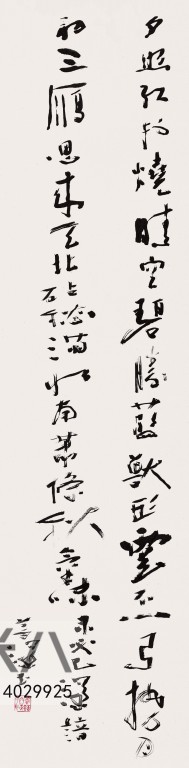 夕照紅於燒晴空碧勝藍獸形雲不一弓勢月
初三雁思來天北砧愁滿水南蕭條秋氣味未老已深諳
4029925